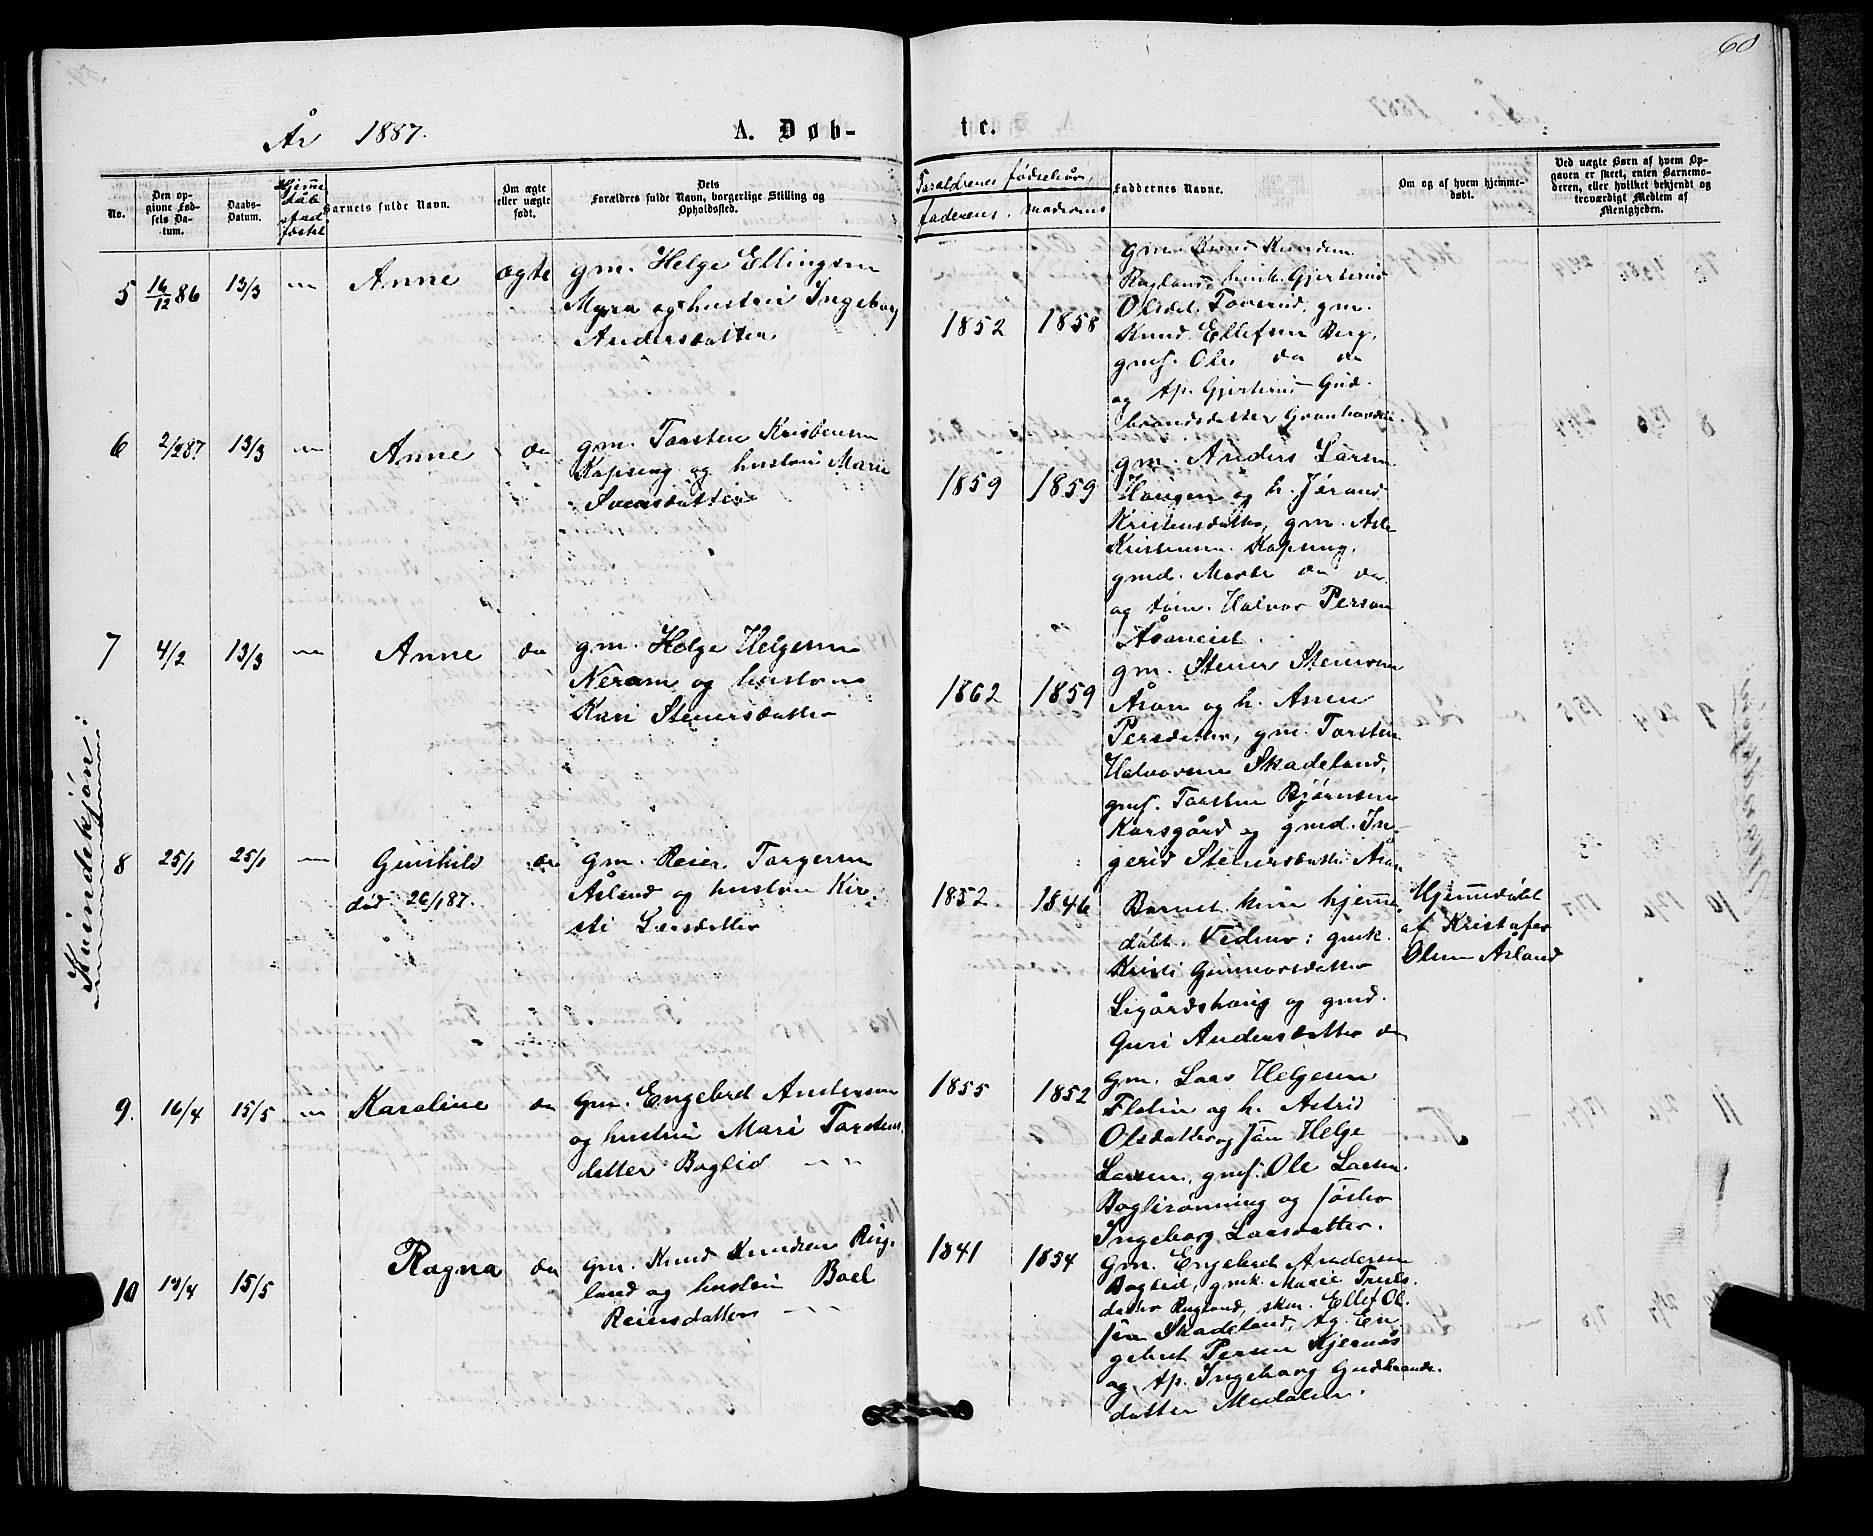 60
År 1887.
A. Døb-
te.
No.
Den op-
givne Fød-
sels Da-
tum.
Daabs-
Datum.
Hjemme
dåb
stad
fæstet
Barnets fulde Navn.
Om ægte
eller uægte
født.
Dets
Forældres fulde Navn, borgerlige Stilling og
Opholdssted.
Forældrenes fødselsår,
faderens. moderens
Faddernes Navne.
Om og af hvem hjemme-
døbt.
Ved uægte Børn af hvem Op-
gaven er skeet, enten Barnemo-
deren, eller hvilket bekjendt og
troværdigt Medlem af
Menigheden.
Kvindekjøn:
5 16/12 86 13/3 — Anne ægte
gm. Helge Ellingsen
Myra og hustru Ingeborg
Andersdatter
1852 1858
gm. Knud Knudsen
Rugland, henk. Gjertrud
Olsdat. Foverud, gm.
Knud Ellefsen Berg,
gmf. Ole do do
og tp. Gjertrud Gud-
brandsdatter Granhovd
6 2/2 87 13/3 — Anne do
gm. Torsten Kristensen
Kapseng og hustru Marie
Svensdatter
1859 1859
gm. Anders Larsen
Haugen og h. Jørand
Kristensdatter, gm. Asle
Kristensen Kapseng,
gmd. Marte do do
og tøm. Halvor Person
Åsaneiet.
7 4/2 13/3 — Anne do
gm. Helge Helgesen
Neram og hustru
Kari Steinersdatter
1862 1859
gm. Stener Stenersen
Åsan og h. Anne
Persdatter, gm. Torsten
Halvorsen Skadeland,
gmf. Torsten Bjørnsen
Korsgård og gmd. In-
gerid Stenersdatter Åsan
8 25/1 25/1 — Gunhild do
død 26/1 87.
gm. Reier Torgersen
Åsland og hustru Kir-
sti Larsdatter
1852 1846
Barnet kun hjemme-
døbt. Vidner: gmk.
Kristi Gunnarsdatter
Ligårdshaug og gmd.
Guri Andersdatter do
Hjemmedøbt
af Kristofer
Olsen Åsland
9. 16/4 15/5 — Karoline do
gm. Engebrd Andersen
og hustru Mari Torstens
datter Boglid — —
1855 1852
gm. Lars Helgesen
Flatin og h. Astrid
Olsdatter og søn Helge
Larsen, gmf. Ole Larsen
Boglirønning og søster
Ingeborg Larsdatter.
10 14/4 15/5 Ragna do
gm. Knud Knudsen Rug-
land og hustru Boel
Reiersdatter — —
1841 1854
gm. Engebret Andersen
Boglid, gmk. Marie Truls-
datter Rugland, skm. Ellef Ol-
sen Skadeland, tg. En-
gebret Persen Kjernås
og tp. Ingeborg Gudbrands-
datter Medalen.